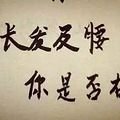 长发及腰
你是否